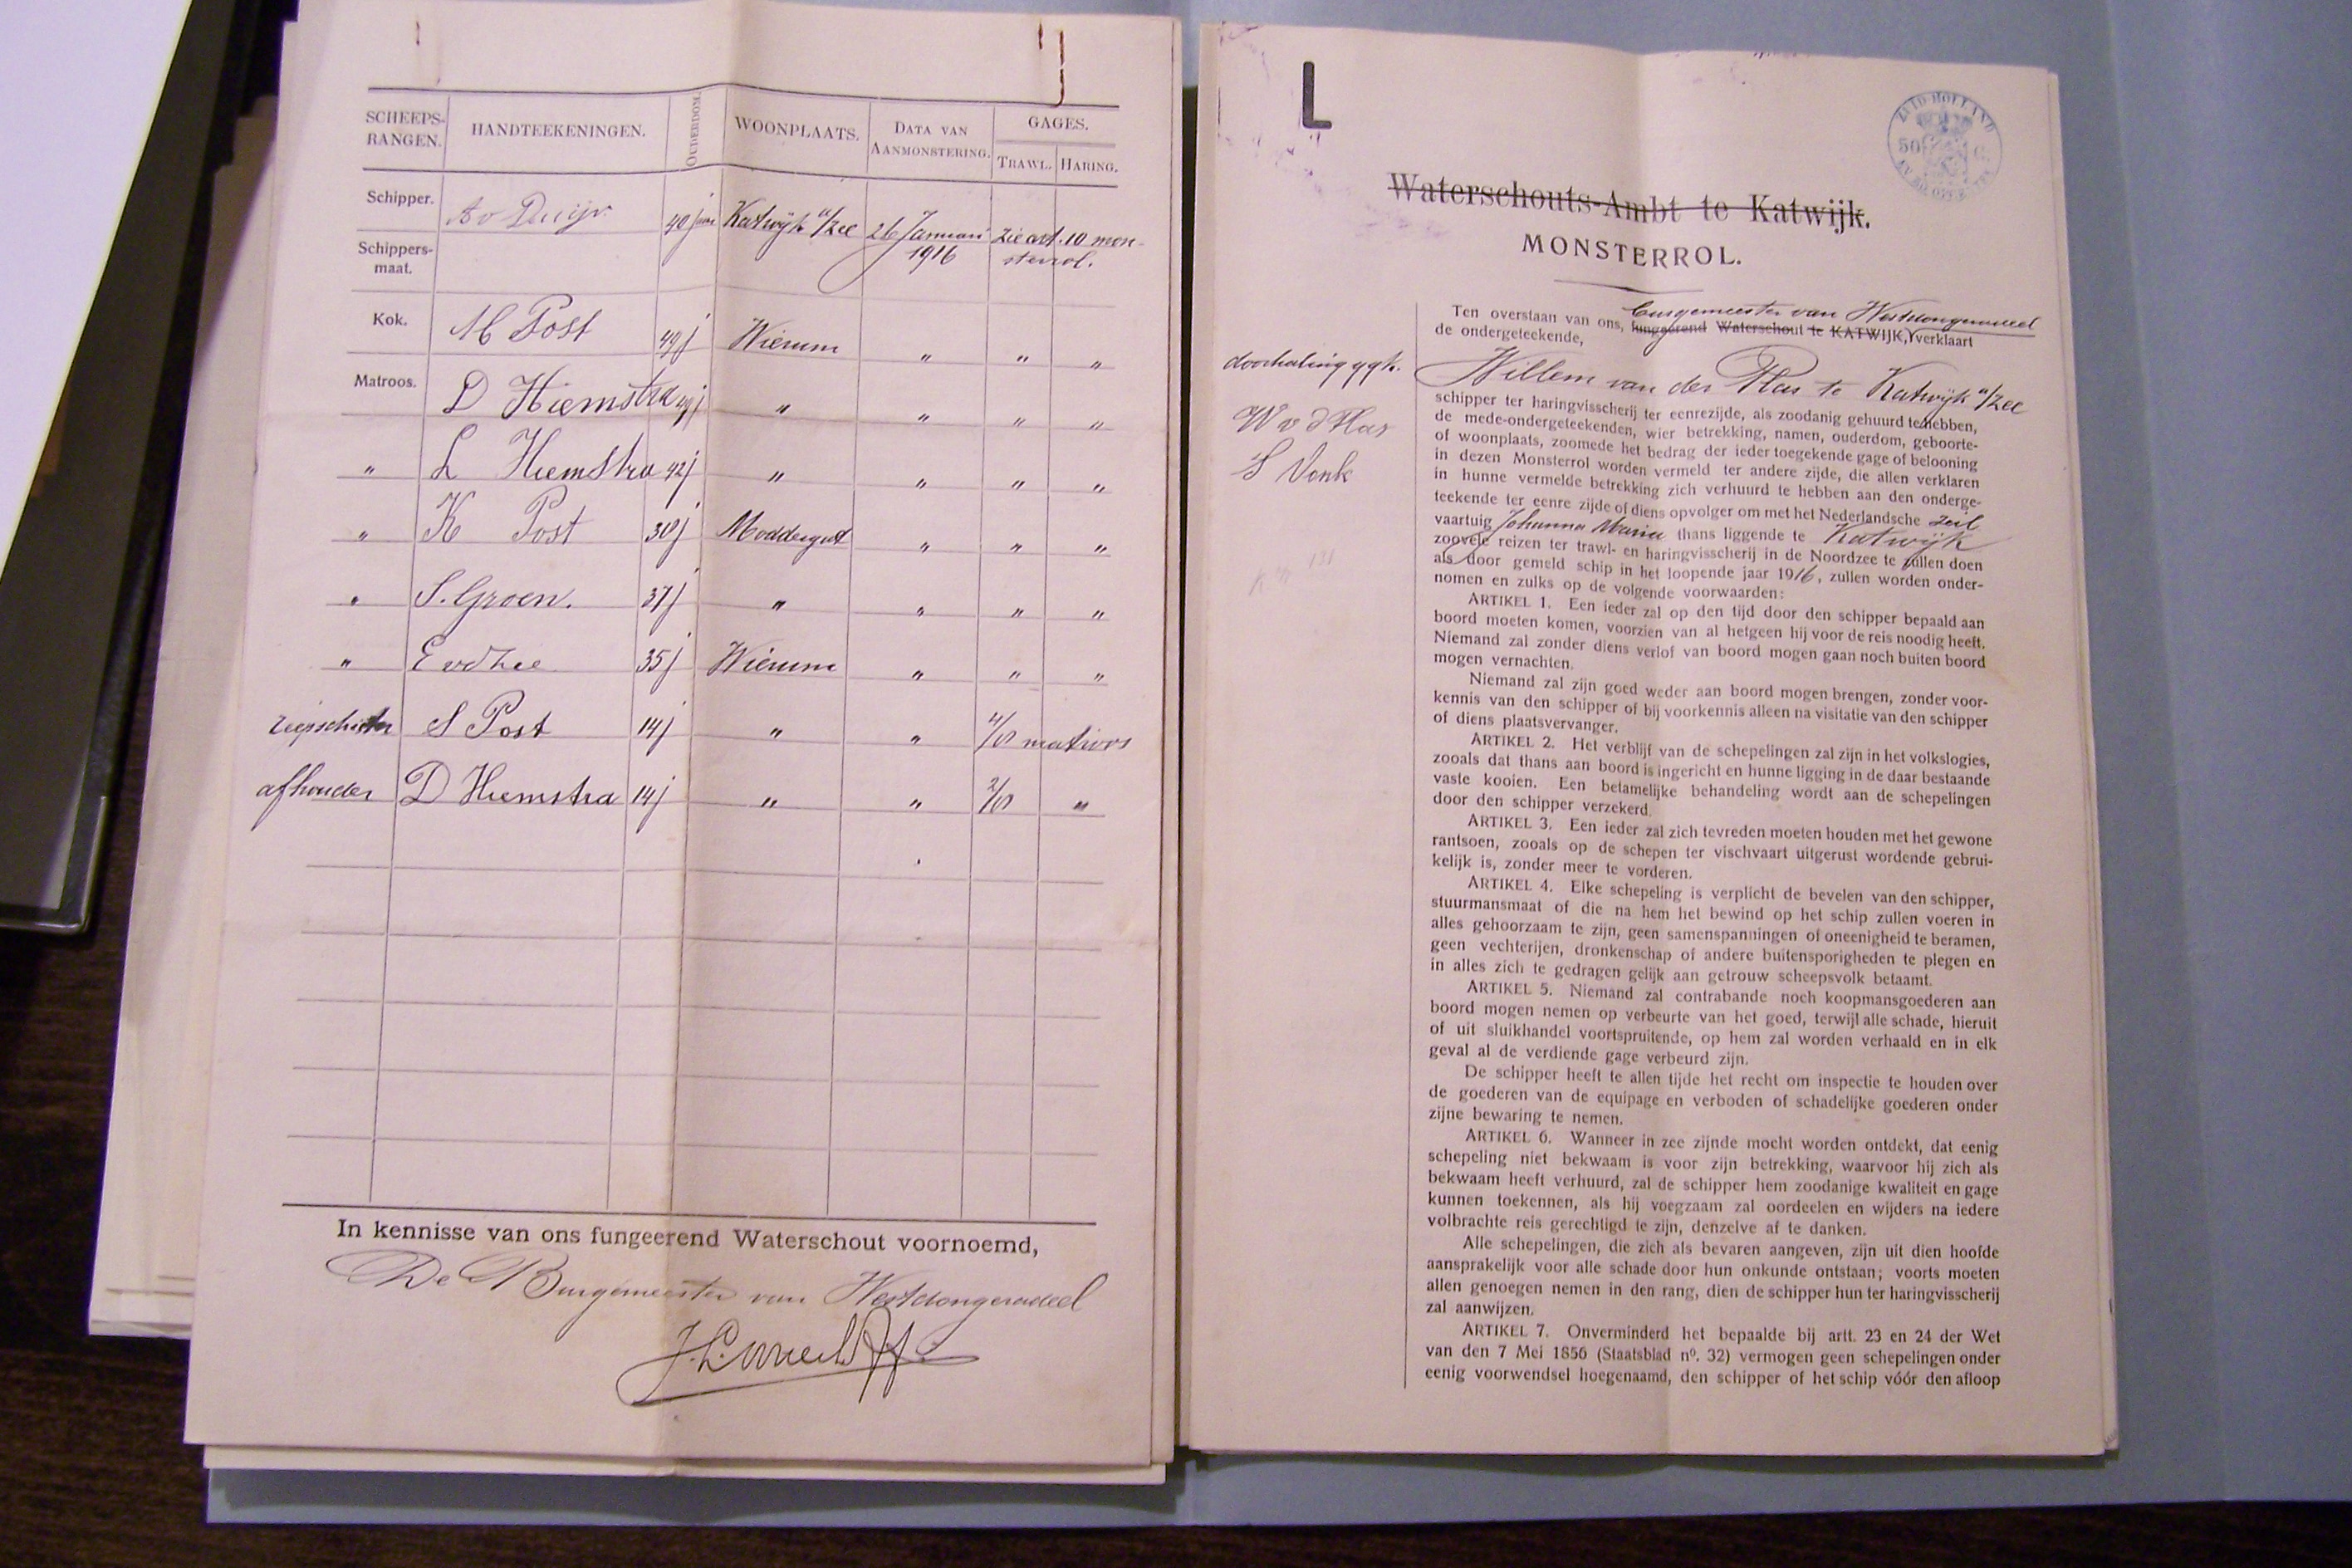 SCHEEPS-RANGEN. HANDTEEKENINGEN. OUDERDOM. WOONPLAATS. DATA VAN AANMONSTERING. GAGES. TRAWL. HARING.
Schipper. A v Duijn 40 jaar Katwijk a/Zee 26 Januari 1916 zie art. 10 monsterrol.
Schippers-maat.
Kok. M Post 49 j Wierum " " "
Matroos. D Hiemstra 49 j " " " "
" L Hiemstra 42 j " " " "
" K Post 38 j Moddergat " " "
" S. Groen. 37 j " " " "
" E vd Zee 35 j Wierum " " "
reepschieter S Post 14 j " " 4/8 matroos
afhouder D Hiemstra 14 j " " 3/8 "
In kennisse van ons fungeerend Waterschout voornoemd,
De Burgemeester van Westdongeradeel
L
ZUID-HOLLAND
50 C.
Waterschouts-Ambt te Katwijk.
MONSTERROL.
Burgemeester van Westdongeradeel
Ten overstaan van ons, fungeerend Waterschout te KATWIJK, verklaart
de ondergeteekende,
doorhaling ggk.
Willem van der Plas te Katwijk a/Zee
W v d Plas
S Vonk
schipper ter haringvisscherij ter eenrezijde, als zoodanig gehuurd te hebben,
de mede-ondergeteekenden, wier betrekking, namen, ouderdom, geboorte-
of woonplaats, zoomede het bedrag der ieder toegekende gage of belooning
in dezen Monsterrol worden vermeld ter andere zijde, die allen verklaren
in hunne vermelde betrekking zich verhuurd te hebben aan den onderge-
teekende ter eenre zijde of diens opvolger om met het Nederlandsche zeil
vaartuig Johanna Maria thans liggende te Katwijk
zoovele reizen ter trawl- en haringvisscherij in de Noordzee te zullen doen
als door gemeld schip in het loopende jaar 1916, zullen worden onder-
nomen en zulks op de volgende voorwaarden:
ARTIKEL 1. Een ieder zal op den tijd door den schipper bepaald aan
boord moeten komen, voorzien van al hetgeen hij voor de reis noodig heeft.
Niemand zal zonder diens verlof van boord mogen gaan noch buiten boord
mogen vernachten.
Niemand zal zijn goed weder aan boord mogen brengen, zonder voor-
kennis van den schipper of bij voorkennis alleen na visitatie van den schipper
of diens plaatsvervanger.
ARTIKEL 2. Het verblijf van de schepelingen zal zijn in het volkslogies,
zooals dat thans aan boord is ingericht en hunne ligging in de daar bestaande
vaste kooien. Een betamelijke behandeling wordt aan de schepelingen
door den schipper verzekerd.
ARTIKEL 3. Een ieder zal zich tevreden moeten houden met het gewone
rantsoen, zooals op de schepen ter vischvaart uitgerust wordende gebrui-
kelijk is, zonder meer te vorderen.
ARTIKEL 4. Elke schepeling is verplicht de bevelen van den schipper,
stuurmansmaat of die na hem het bewind op het schip zullen voeren in
alles gehoorzaam te zijn, geen samenspanningen of oneenigheid te beramen,
geen vechterijen, dronkenschap of andere buitensporigheden te plegen en
in alles zich te gedragen gelijk aan getrouw scheepsvolk betaamt.
ARTIKEL 5. Niemand zal contrabande noch koopmansgoederen aan
boord mogen nemen op verbeurte van het goed, terwijl alle schade, hieruit
of uit sluikhandel voortspruitende, op hem zal worden verhaald en in elk
geval al de verdiende gage verbeurd zijn.
De schipper heeft te allen tijde het recht om inspectie te houden over
de goederen van de equipage en verboden of schadelijke goederen onder
zijne bewaring te nemen.
ARTIKEL 6. Wanneer in zee zijnde mocht worden ontdekt, dat eenig
schepeling niet bekwaam is voor zijn betrekking, waarvoor hij zich als
bekwaam heeft verhuurd, zal de schipper hem zoodanige kwaliteit en gage
kunnen toekennen, als hij voegzaam zal oordeelen en wijders na iedere
volbrachte reis gerechtigd te zijn, denzelve af te danken.
Alle schepelingen, die zich als bevaren aangeven, zijn uit dien hoofde
aansprakelijk voor alle schade door hun onkunde ontstaan; voorts moeten
allen genoegen nemen in den rang, dien de schipper hun ter haringvisscherij
zal aanwijzen.
ARTIKEL 7. Onverminderd het bepaalde bij artt. 23 en 24 der Wet
van den 7 Mei 1856 (Staatsblad nº. 32) vermogen geen schepelingen onder
eenig voorwendsel hoegenaamd, den schipper of het schip vóór den afloop